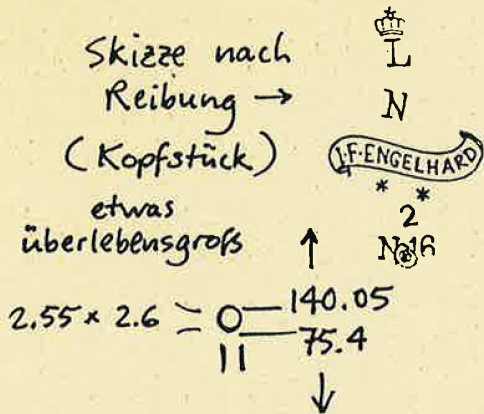 Skizze nach
Reibung →
(Kopfstück)
etwas
überlebensgroß
L
N
I·F·ENGELHARD
* *
2
No16
2.55 × 2.6
140.05
75.4